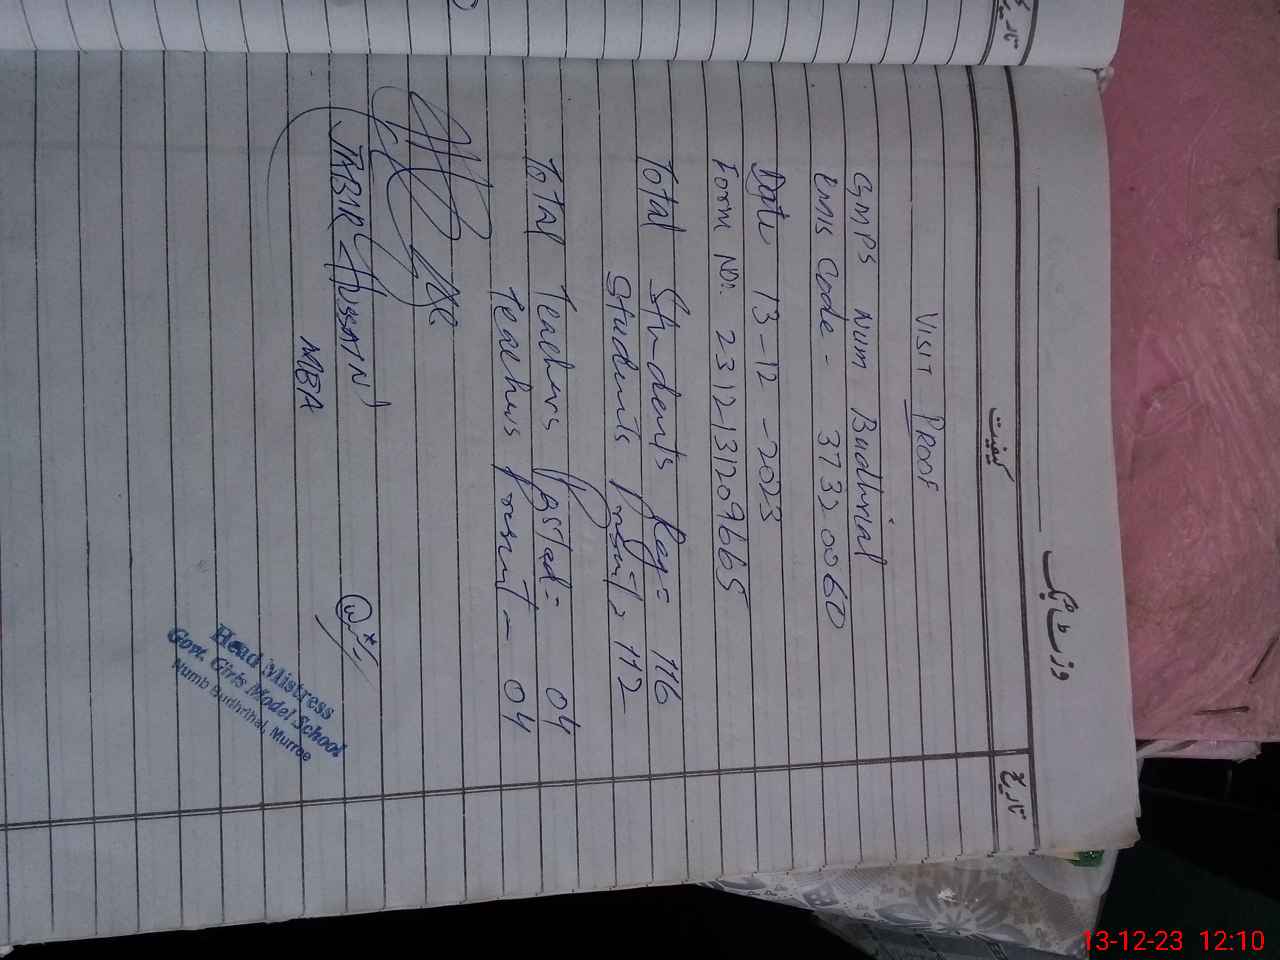 وزٹ بک
کیفیت
تاریخ
VISIT PROOF
GMPS Num Budhrial
EMIS Code - 37320060
Date 13-12-2023
Form No. 2312131209665
Total Students Reg = 116
Students Present = 112
Total Teachers Posted = 04
Total Teachers Present - 04
JABIR HUSSAIN
MEA
Head Mistress
Govt. Girls Model School
Numb Budhrihal, Murree
تاریخ
13-12-23 12:10